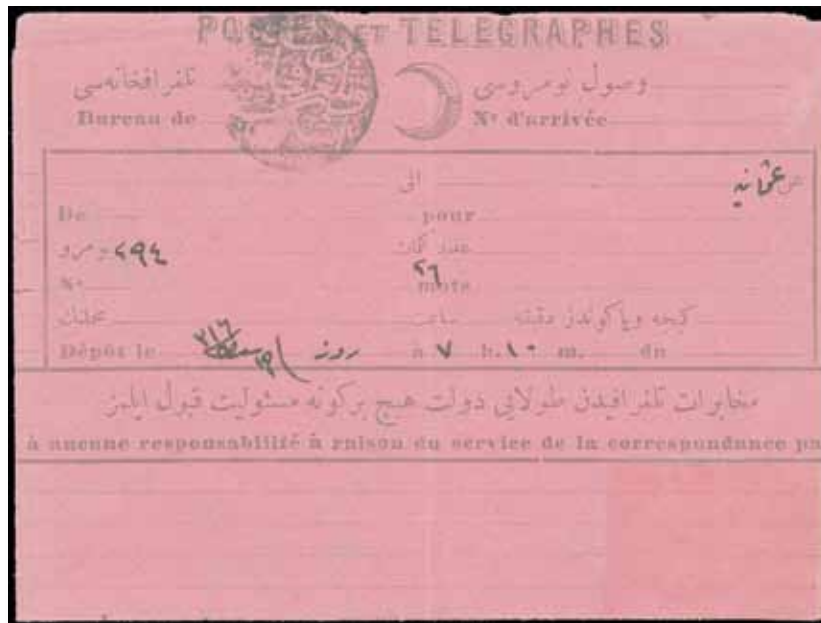 POSTES ET TELEGRAPHES
تلغرافخانه‌سی وصول نومروسی
Bureau de Nº d'arrivée
عثمانیه الی
De pour
نومرو ٤٩٤ عدد كلمات
Nº ٢٦ mots
محلنك ساعت كیجه ویا كوندز دقیقه
Dépôt le à ٧ h. ١٠ m. du
مخابرات تلغرافیدن طولایی دولت هیچ برکونه مسئولیت قبول ایلمز
à aucune responsabilité à raison du service de la correspondance pa